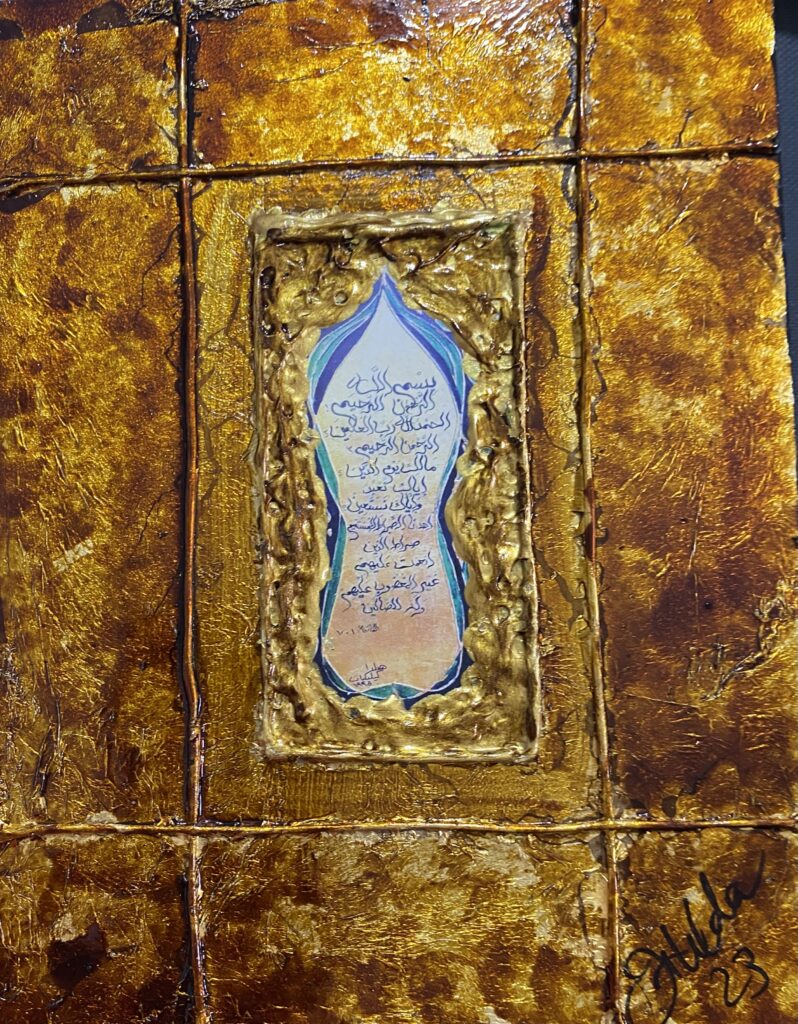 بسم الله
الرحمن الرحيم
الحمد لله رب العلمين
الرحمن الرحيم
مالك يوم الدين
إياك نعبد
وإياك نستعين
اهدنا الصراط المستقيم
صراط الذين
انعمت عليهم
غير المغضوب عليهم
ولا الضالين
23